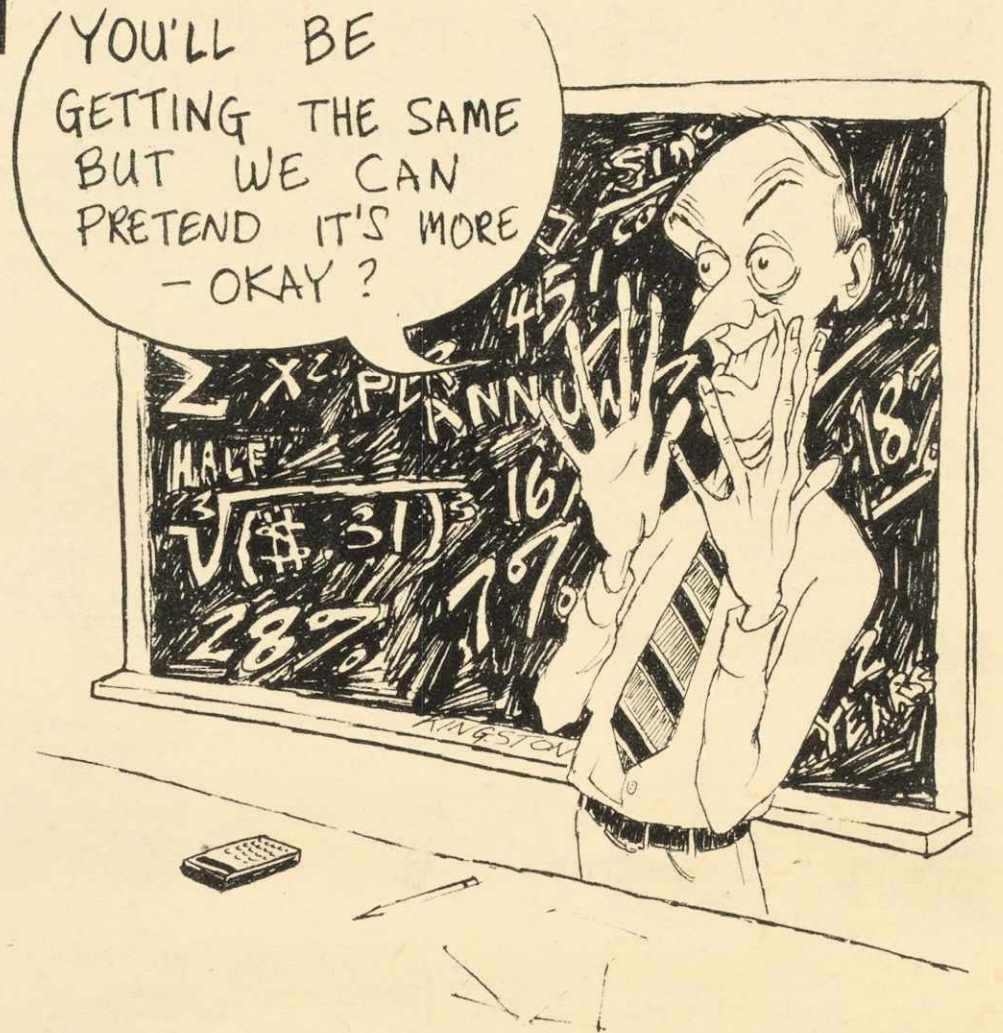 YOU'LL BE
GETTING THE SAME
BUT WE CAN
PRETEND IT'S MORE
- OKAY?
SIN
45
Σ X²
ANNUM
18%
HALF
³√($.31)³
16%
28%
7%
2
YEARS
KINGSTON